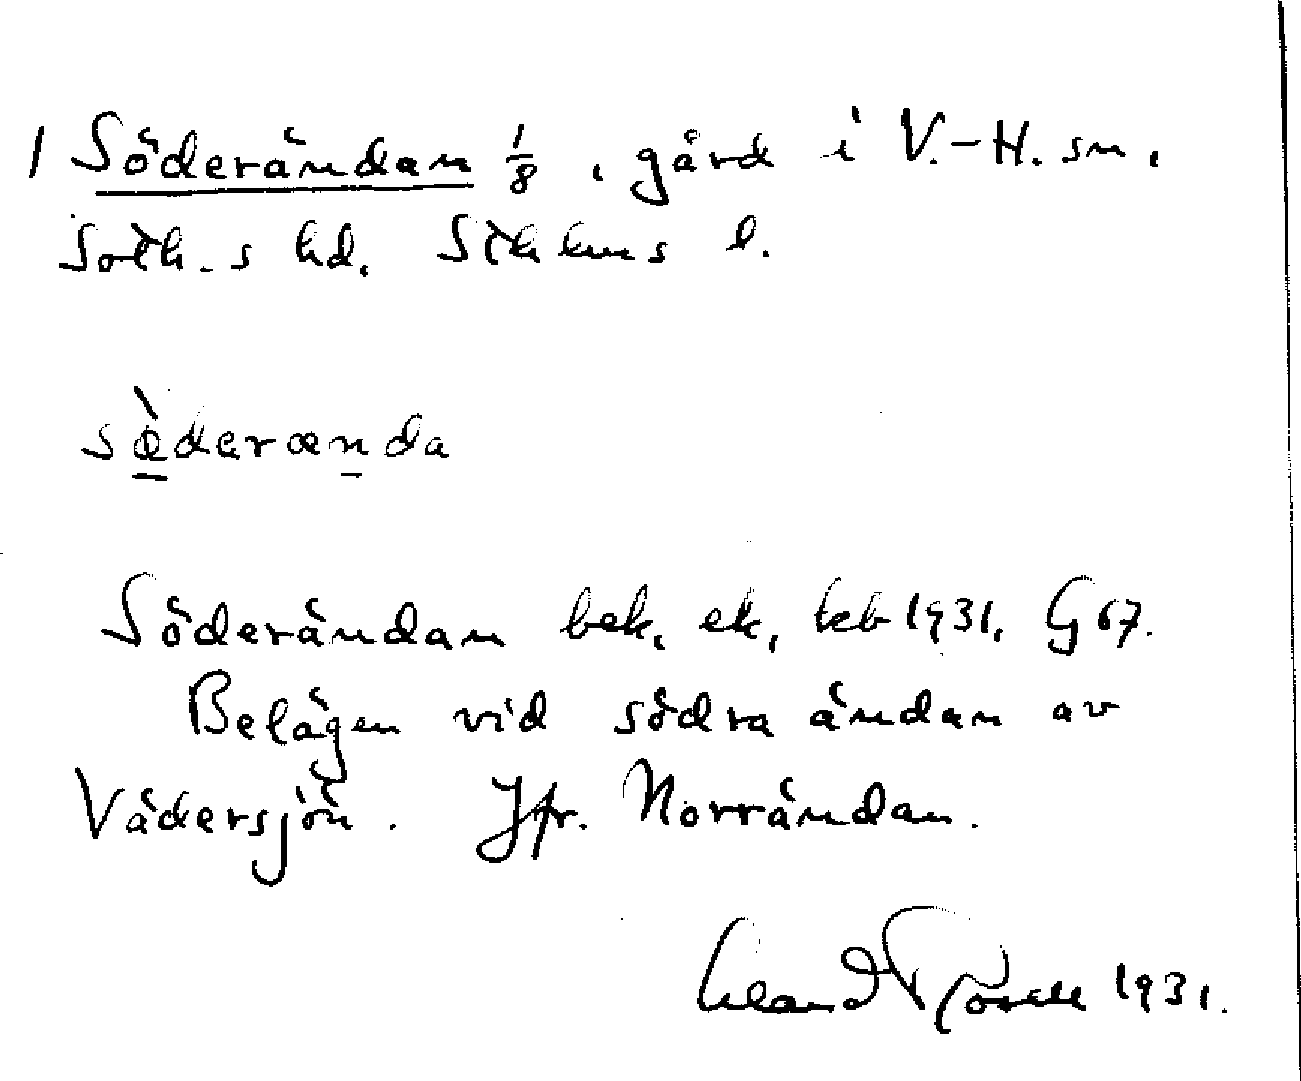 1 Söderändan 1/8, gård i V.-H. sn,
Soth.s hd. Sthlms l.
söderænda
Söderändan bek. ek. keb 1931. G 67.
Belägen vid södra ändan av
Vädersjön. Jfr. Norrändan.
1931.